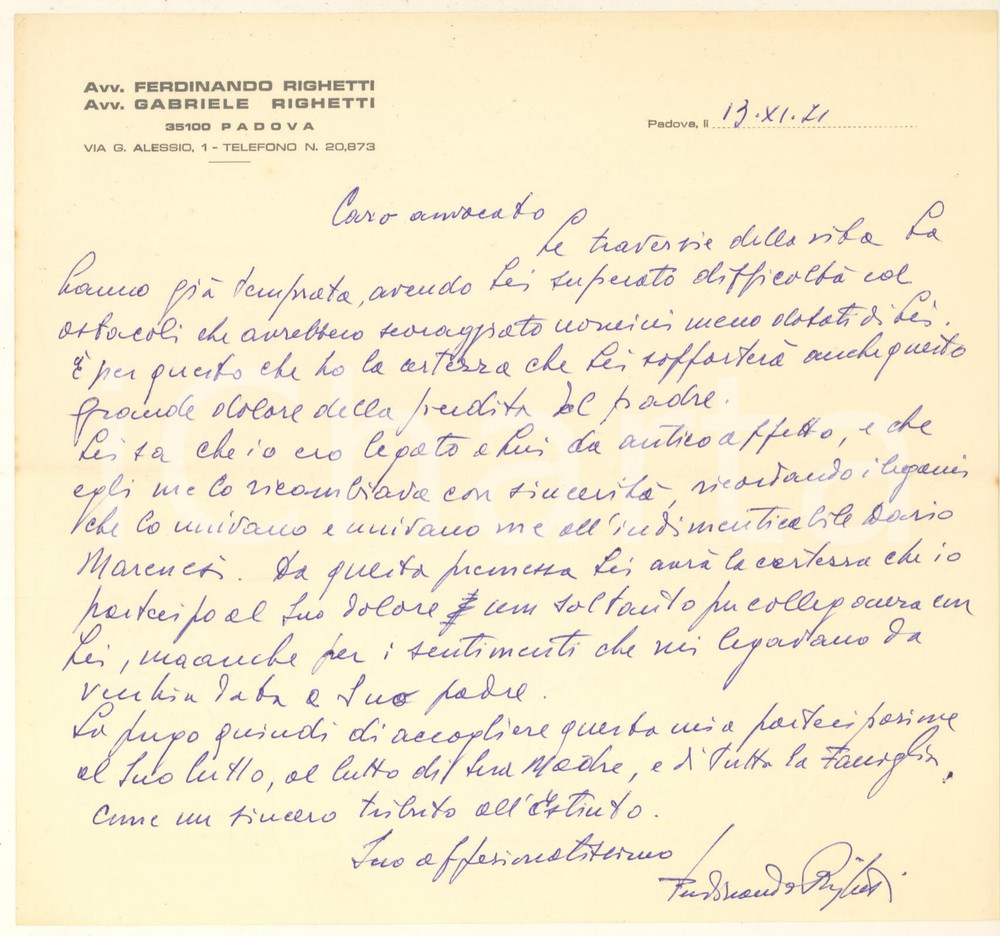 Avv. FERDINANDO RIGHETTI
Avv. GABRIELE RIGHETTI
35100 PADOVA
VIA G. ALESSIO, 1 - TELEFONO N. 20,873
Padova, li 13.XI.71
Caro avvocato
Le traversie della vita La
hanno già temprata, avendo Lei superato difficoltà ed
ostacoli che avrebbero scoraggiato uomini meno dotati di Lei.
È per questo che ho la certezza che Lei sopporterà anche questo
grande dolore della perdita del padre.
Lei sa che io ero legato a Lui da antico affetto, e che
egli me lo ricambiava con sincerità, ricordando i legami
che lo univano e univano me all'indimenticabile Dario
Marenesi. Da questa premessa Lei avrà la certezza che io
partecipo al Suo dolore non soltanto per colleganza con
Lei, ma anche per i sentimenti che mi legavano da
vecchia data a Suo padre.
La prego quindi di accogliere questa mia partecipazione
al Suo lutto, al lutto di Sua Madre, e di tutta la Famiglia,
come un sincero tributo all'Estinto.
Suo affezionatissimo
Ferdinando Righetti
Charta